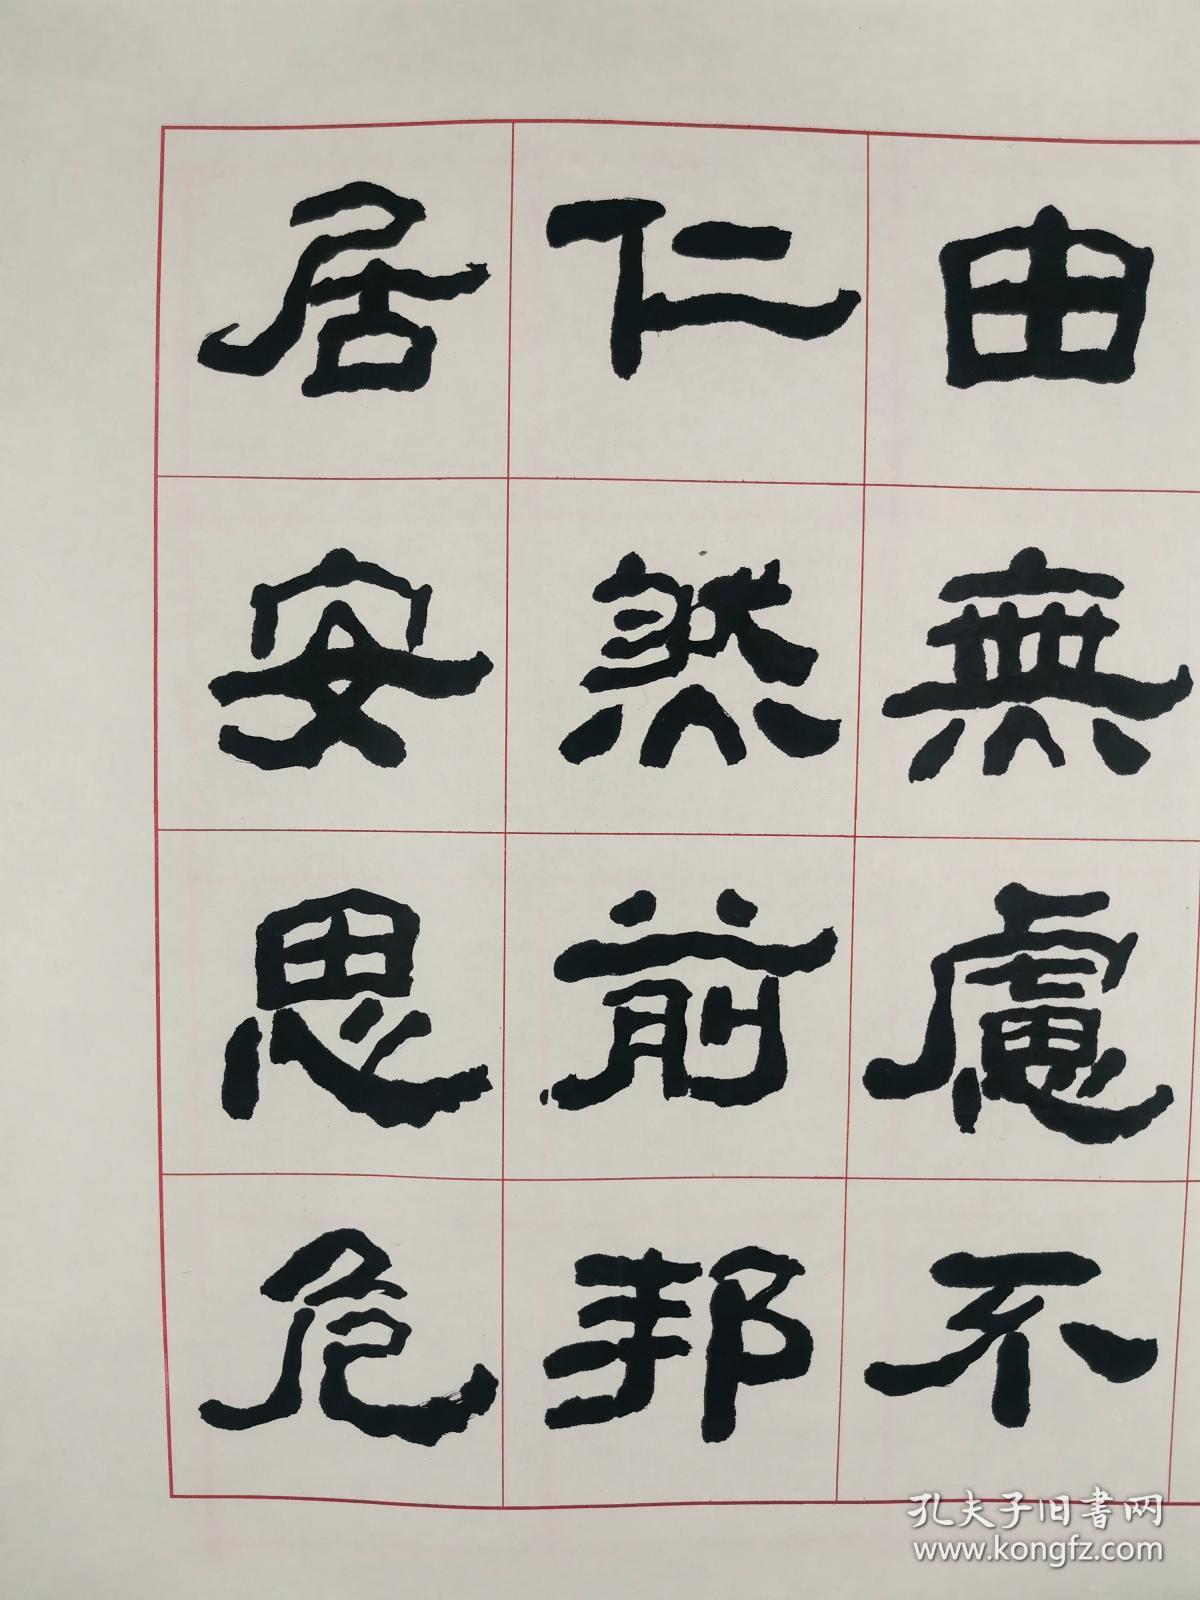 由無慮不
仁然前邦
居安思危
孔夫子旧書网
www.kongfz.com